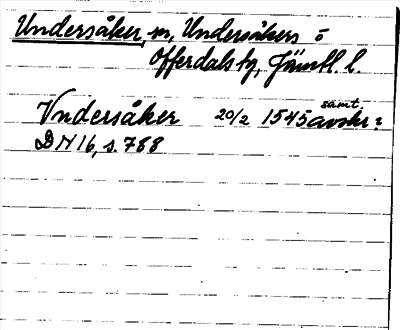 Undersåker, sn, Undersåkers o
Offerdals tg, Jämtl. l.
Vndersåker 20/2 1545 samt. avskr:
DN 16, s. 788